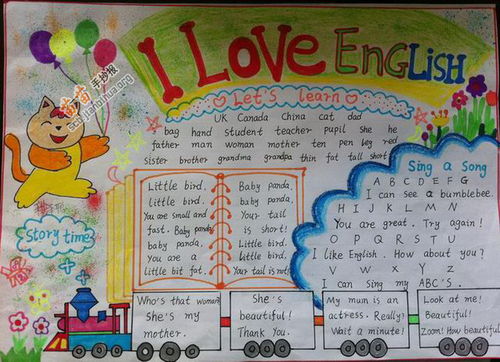 I LOVE ENGLISH
Let's learn
UK Canada China cat dad
bag hand student teacher pupil she he
father man woman mother ten pen leg red
sister brother grandma grandpa thin fat tall short
Story time
Little bird,
little bird,
You are small and
fast. Baby panda,
baby panda,
You are a
little bit fat.
Baby panda,
baby panda,
Your tail
is short!
Little bird,
little bird,
Your tail is not!
Sing a Song
A B C D E F G
I can see a bumblebee
H I J K L M N
You are great. Try again!
O P Q R S T U
I like English. How about you?
V W X Y Z
I can Sing my ABC'S.
Who's that woman?
She's my
mother.
She's
beautiful!
Thank You.
My mum is an
actress. Really?
Wait a minute!
Look at me!
Beautiful!
Zoom! How beautiful
手抄报